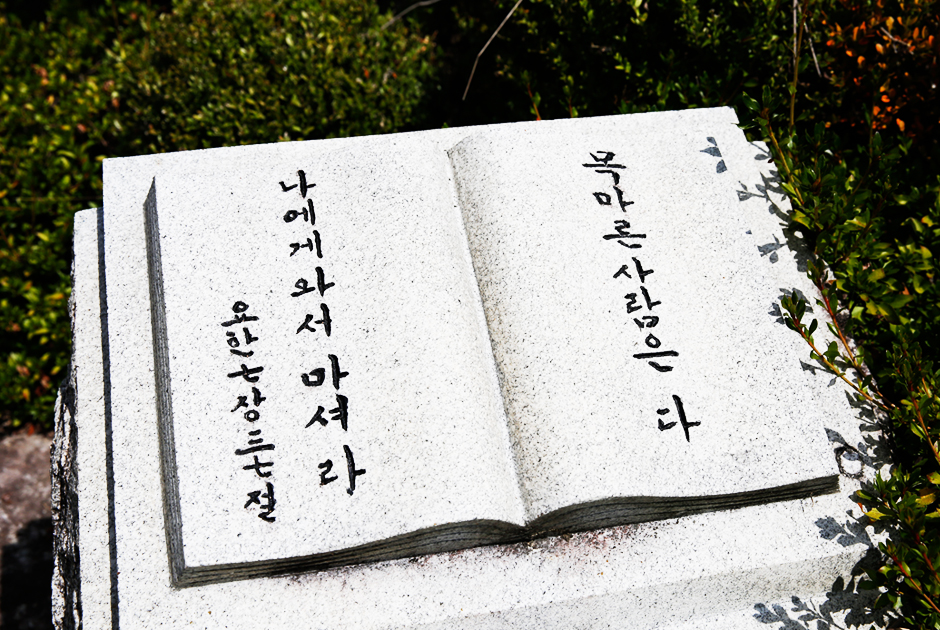 목마른사람은 다
나에게와서 마셔라
요한七장三七절